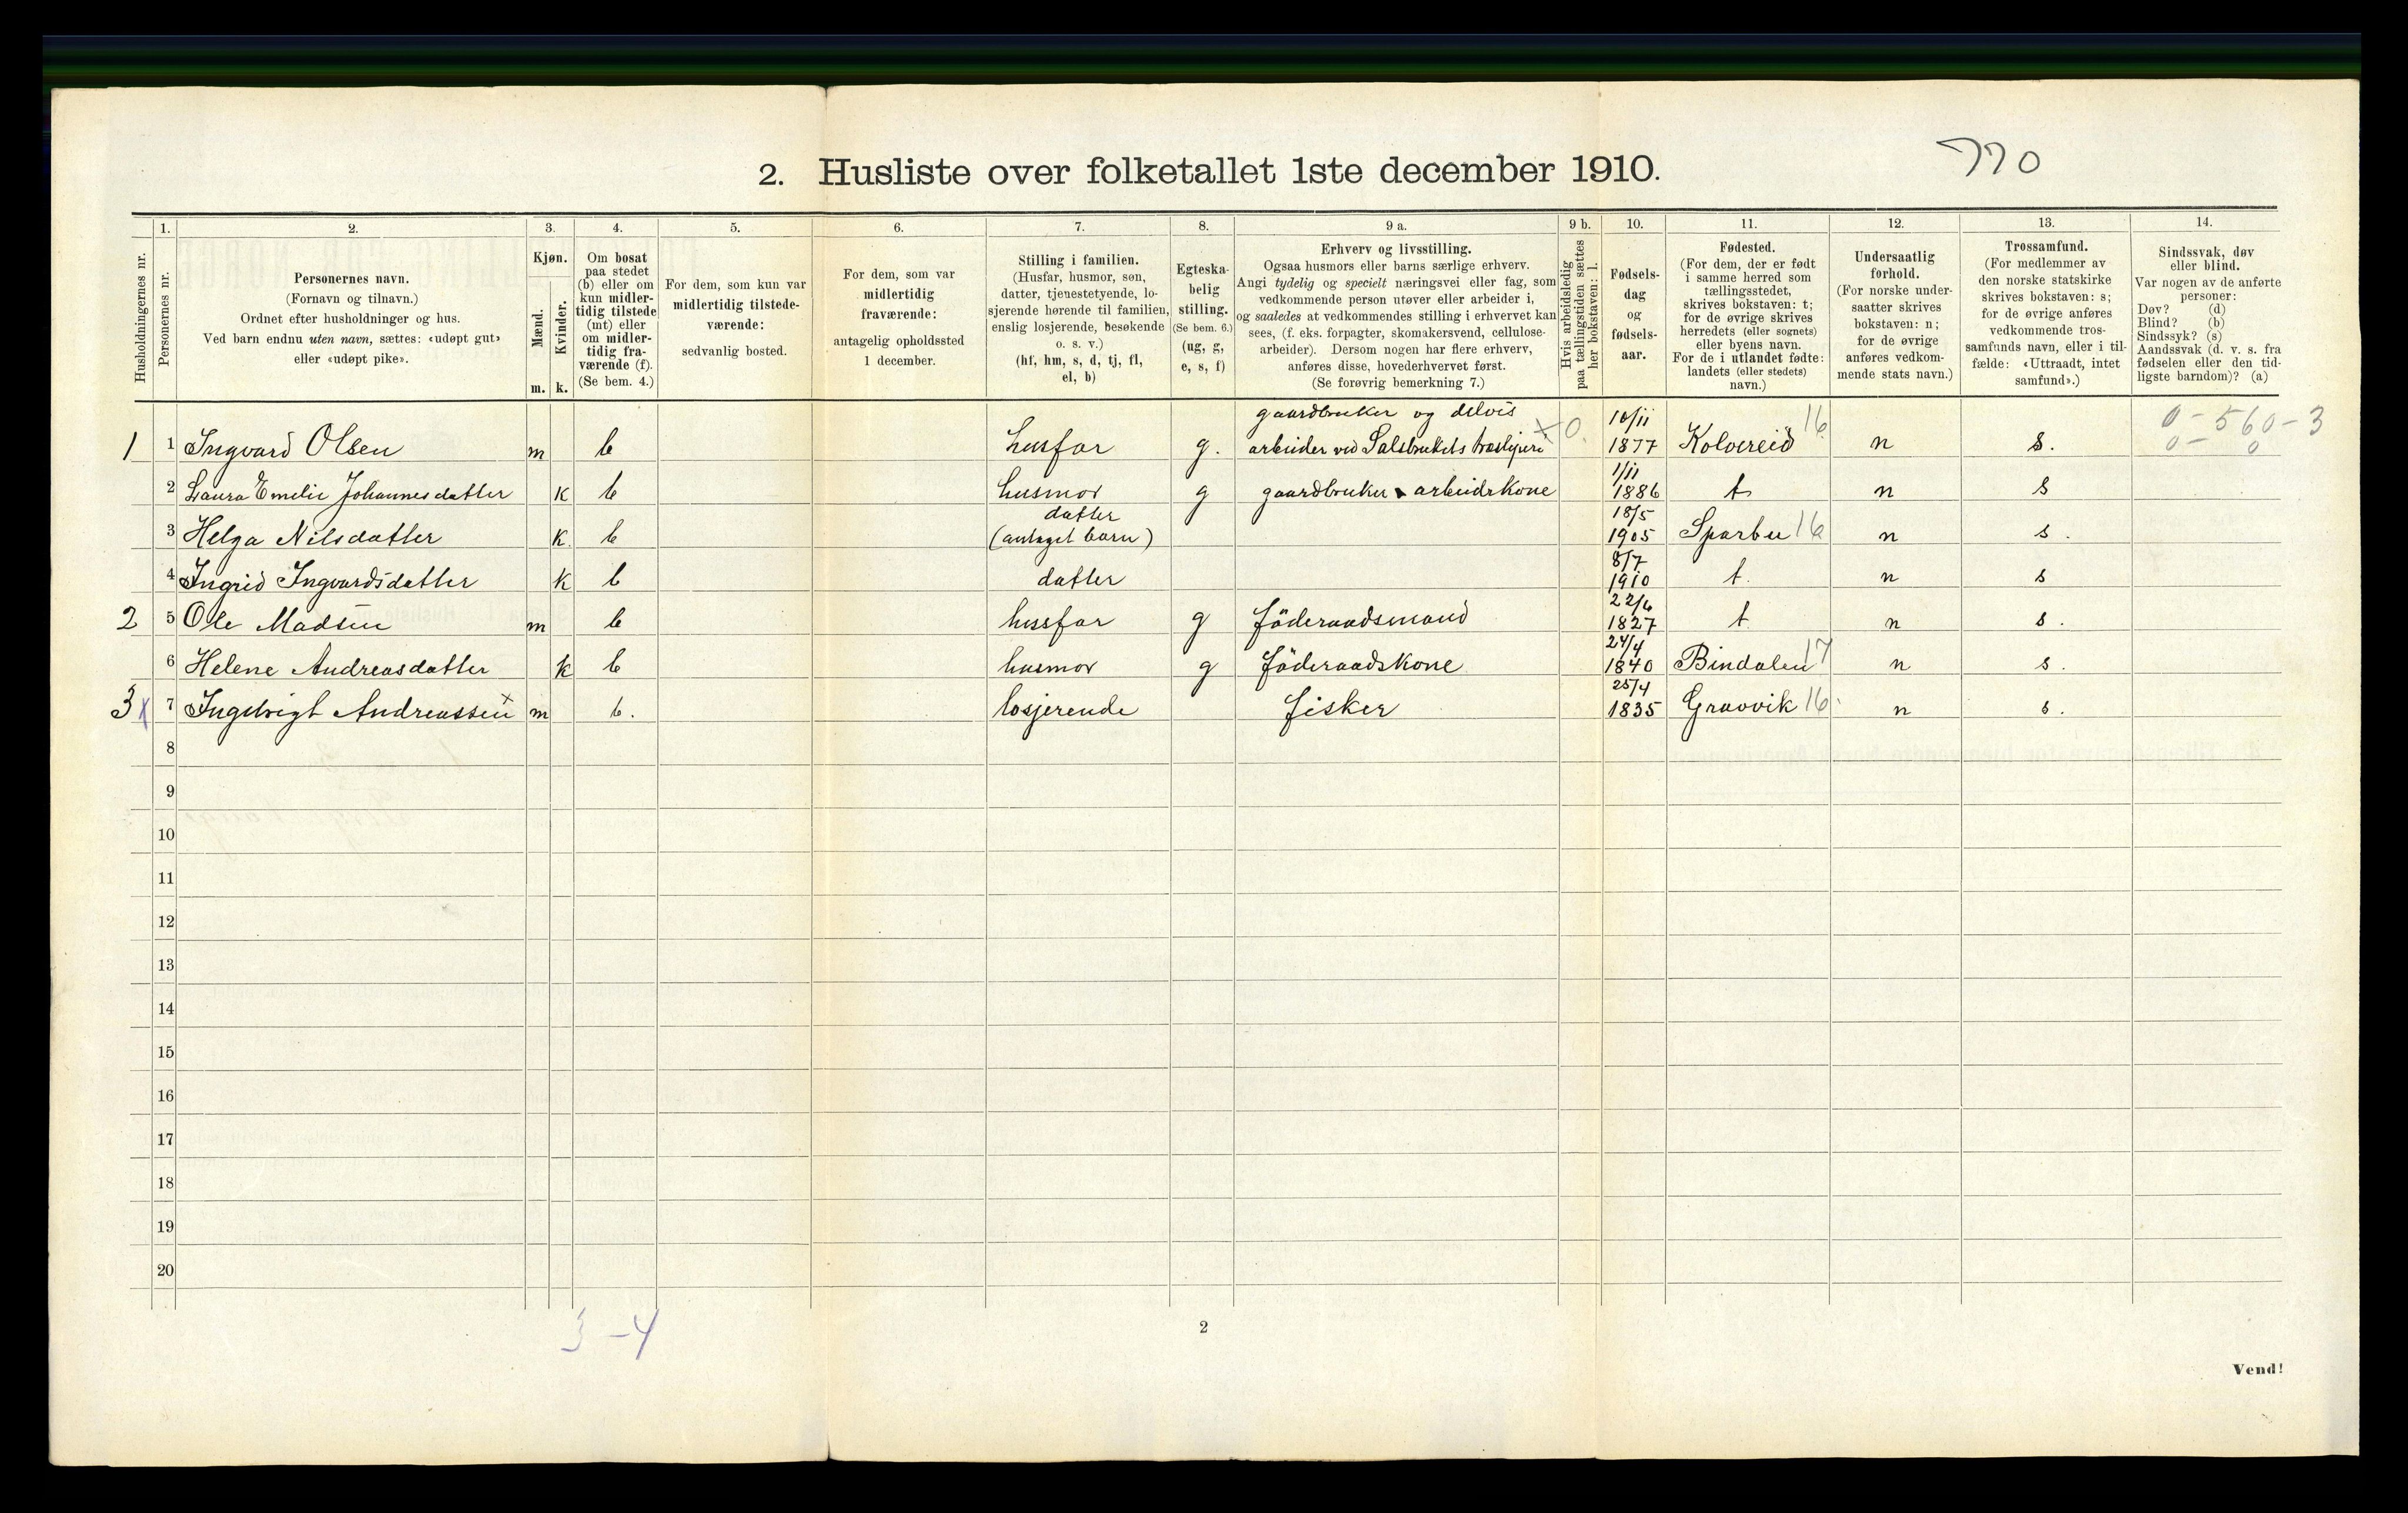 770
2. Husliste over folketallet 1ste december 1910.
Husholdningernes nr.
1.
Personernes nr.
2.
Personernes navn.
(Fornavn og tilnavn.)
Ordnet efter husholdninger og hus.
Ved barn endnu uten navn, sættes: «udøpt gut»
eller «udøpt pike».
3.
Kjøn.
Mænd.
Kvinder.
m. k.
4.
Om bosat
paa stedet
(b) eller om
kun midler-
tidig tilstede
(mt) eller
om midler-
tidig fra-
værende (f).
(Se bem. 4.)
5.
For dem, som kun var
midlertidig tilstede-
værende:
sedvanlig bosted.
6.
For dem, som var
midlertidig
fraværende:
antagelig opholdssted
1 december.
7.
Stilling i familien.
(Husfar, husmor, søn,
datter, tjenestetyende, lo-
sjerende hørende til familien,
enslig losjerende, besøkende
o. s. v.)
(hf, hm, s, d, tj, fl,
el, b)
8.
Egteska-
belig
stilling.
(Se bem. 6.)
(ug, g,
e, s, f)
9 a.
Erhverv og livsstilling.
Ogsaa husmors eller barns særlige erhverv.
Angi tydelig og specielt næringsvei eller fag, som
vedkommende person utøver eller arbeider i,
og saaledes at vedkommendes stilling i erhvervet kan
sees, (f. eks. forpagter, skomakersvend, cellulose-
arbeider). Dersom nogen har flere erhverv,
anføres disse, hovederhvervet først.
(Se forøvrig bemerkning 7.)
9 b.
Hvis arbeidsledig
paa tællingstiden sættes
her bokstaven: l.
10.
Fødsels-
dag
og
fødsels-
aar.
11.
Fødested.
(For dem, der er født
i samme herred som
tællingsstedet,
skrives bokstaven: t;
for de øvrige skrives
herredets (eller sognets)
eller byens navn.
For de i utlandet fødte:
landets (eller stedets)
navn.)
12.
Undersaatlig
forhold.
(For norske under-
saatter skrives
bokstaven: n;
for de øvrige
anføres vedkom-
mende stats navn.)
13.
Trossamfund.
(For medlemmer av
den norske statskirke
skrives bokstaven: s;
for de øvrige anføres
vedkommende tros-
samfunds navn, eller i til-
fælde: «Uttraadt, intet
samfund».)
14.
Sindssvak, døv
eller blind.
Var nogen av de anførte
personer:
Døv? (d)
Blind? (b)
Sindssyk? (s)
Aandssvak (d. v. s. fra
fødselen eller den tid-
ligste barndom)? (a)
gaardbruker og delvis 10/11 16 0 - 560 - 3
1 1 Ingvard Olsen m b husfar g. arbeider ved Salsbrukets træsliperi 0. 1877 Kolvereid n s. 0 - 0
1/11
2 Laura Emelie Johannesdatter k b husmor g gaardbruker arbeiderkone 1886 t n s
datter 18/5
3 Helga Nilsdatter k. b (antaget barn) 1905 Sparbu 16 n s.
8/7
4 Ingrid Ingvardsdatter k b datter 1910 t. n s
22/6
2 5 Ole Madsen m b husfar g föderaadsmand 1827 t n s.
24/4
6 Helene Andreasdatter k b husmor g föderaadskone 1840 Bindalen 17 n s.
25/4
3 x 7 Ingebrigt Andreassen x m b. losjerende fisker 1835 Gravvik 16. n s.
8
9
10
11
12
13
14
15
16
17
18
19
20
3 - 4
2
Vend!